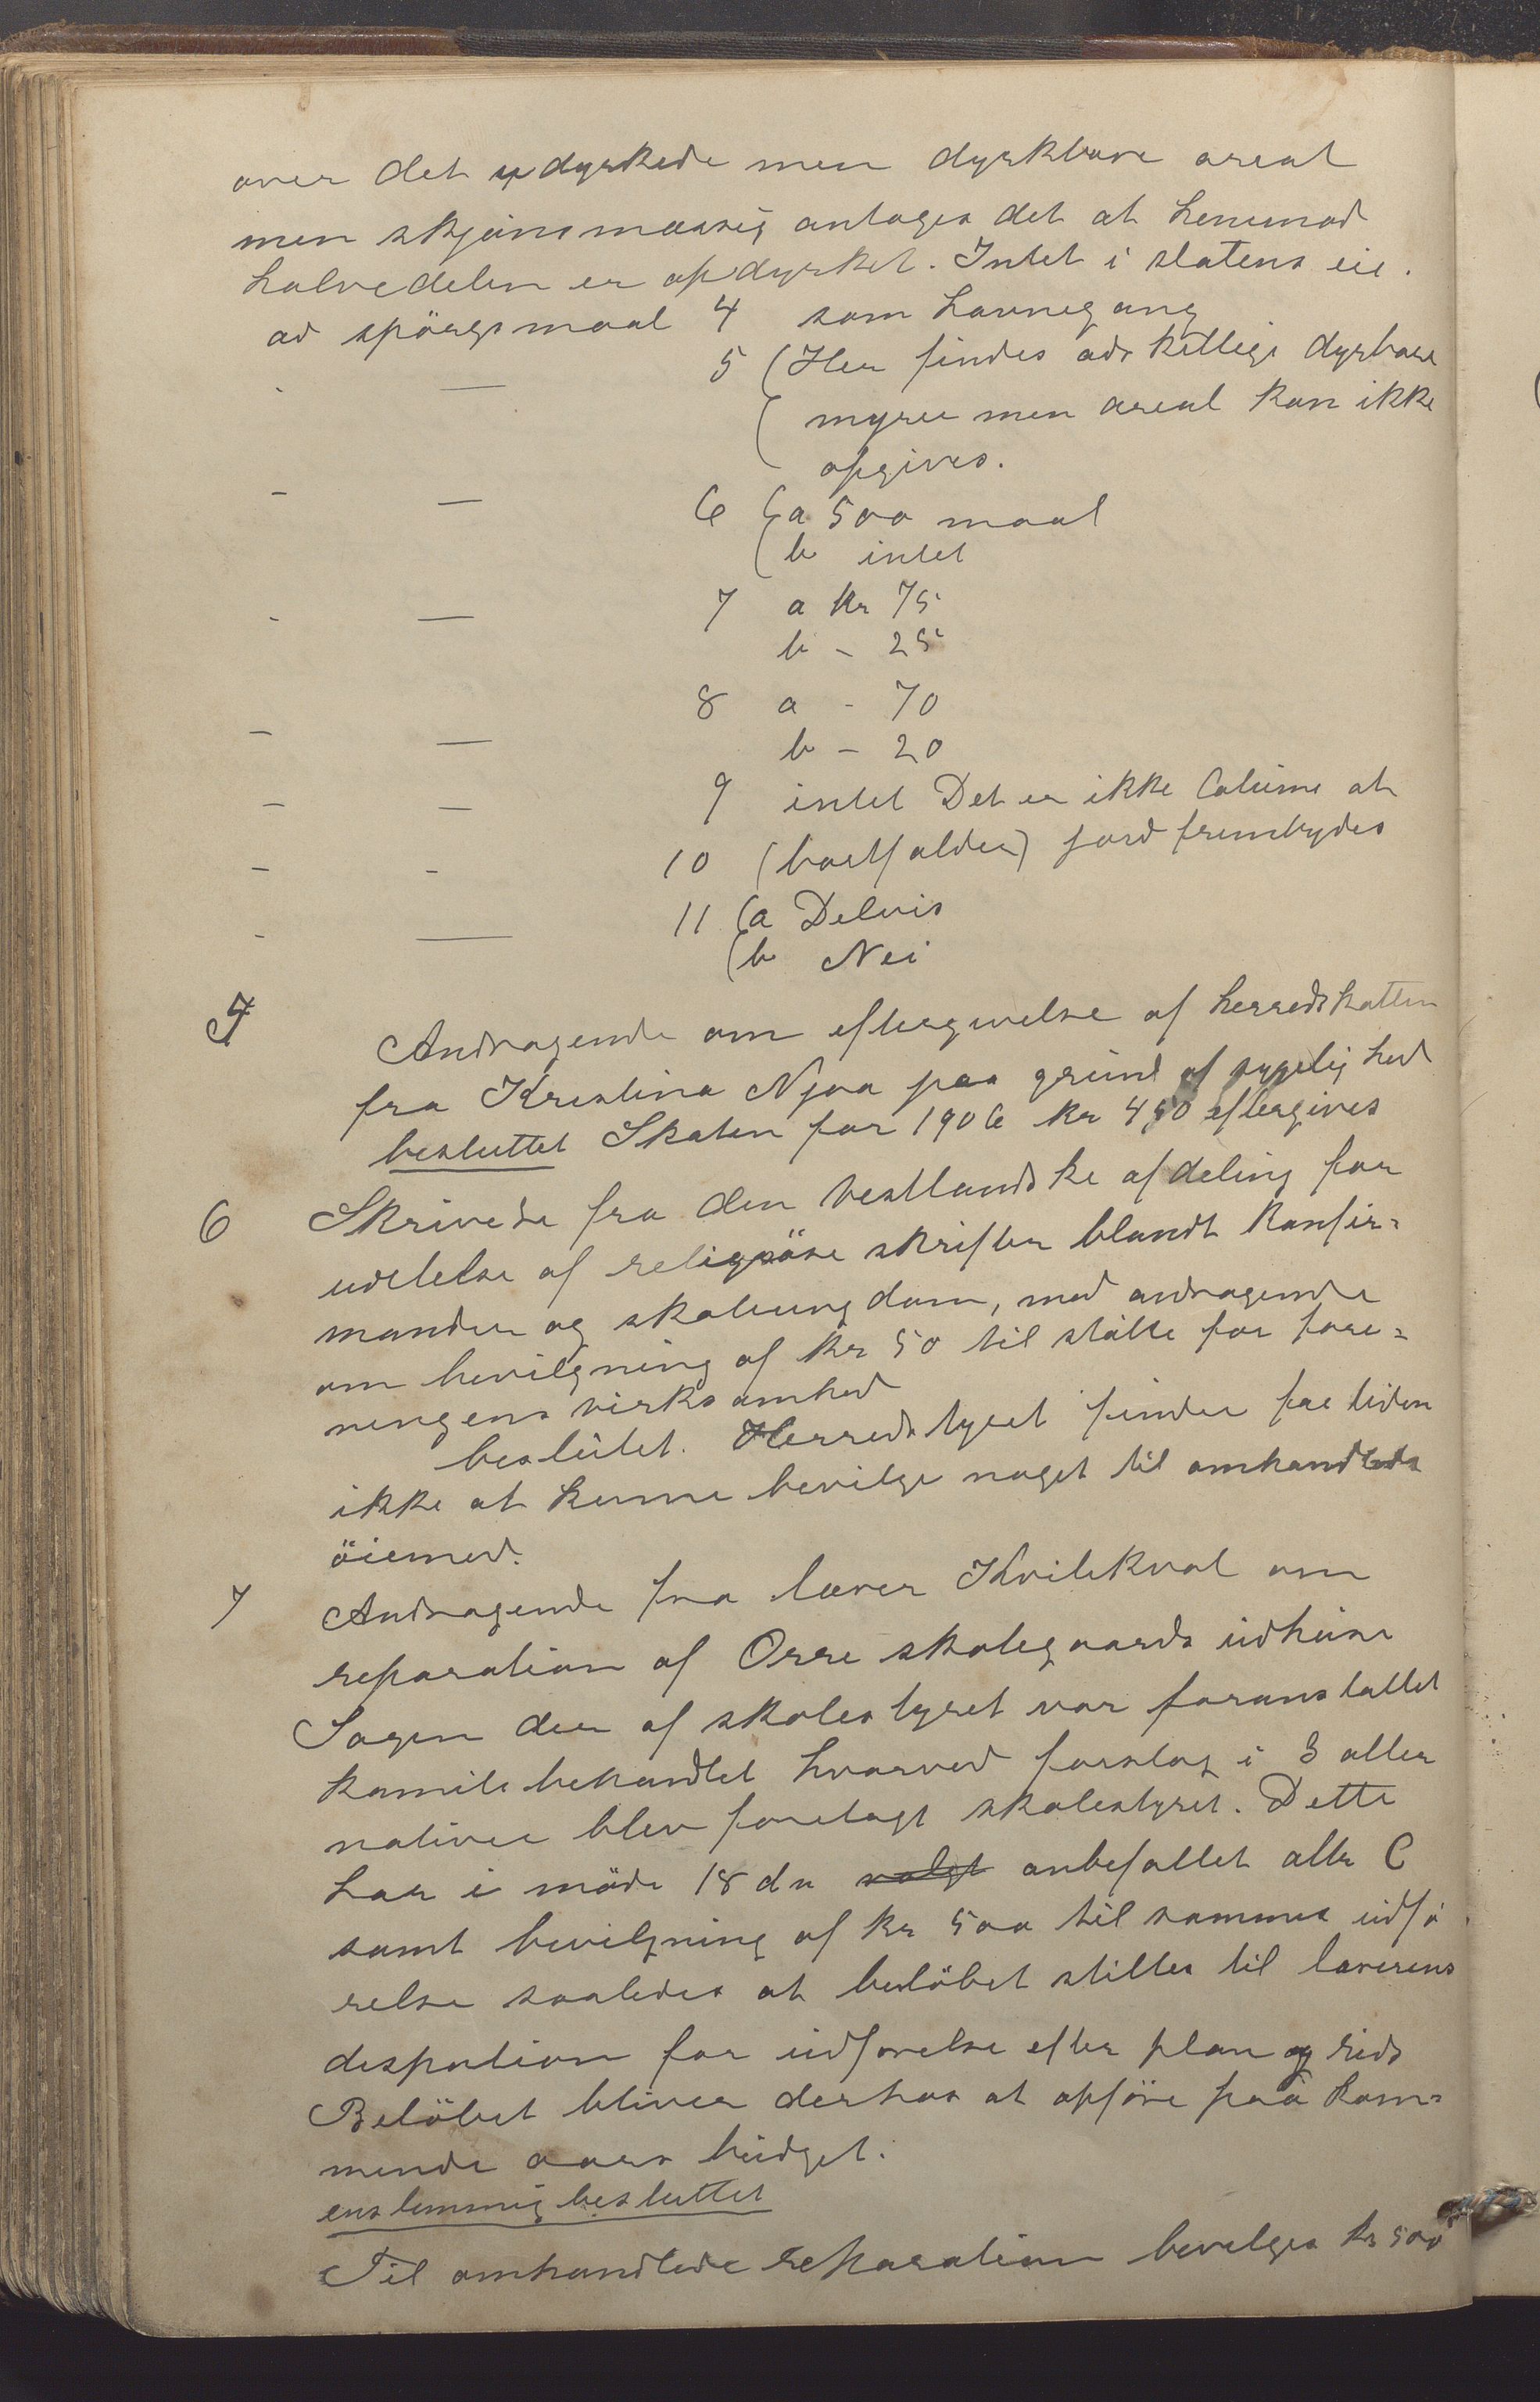 over det udyrkede men dyrkbare areal
men skjønsmæssig antages det at henimod
halvedelen er opdyrket. Intet i statens eie.
ad spörgsmaal 4 som havnegang
- — 5 (Her findes adskillige dyrbare
( myrer men areal kan ikke
opgives.
- — 6 (a 500 maal
(b intet
- — 7 a kr 75
b - 25
- — 8 a - 70
b - 20
- — 9 intet Det er ikke at
- - 10 (bortfalder) jord frembydes
- — 11 (a Delvis
(b Nei
Andragende om eftergivelse af herredskatten
fra Kristina Njaa paa grund af sygelighed
besluttet Skaten for 1906 kr 450 eftergives
6 Skrivelse fra den vestlandske afdeling for
udelelse af religiöse skrifter blandt konfir=
mander og skoleungdom, med andragende
om bevilgning af kr 50 til stötte for fore=
ningens virksomhed
beslutet. Herredstyret finder for tiden
ikke at kunne bevilge noget til omhandlede
öiemed.
7 Andragende fra lærer Kvilekval om
reparation af Orre skolegaards udhuse
Sagen der af skolestyret var foranstaltet
komite behandlet hvorved forslag i 3 alter
nativer blev forelagt skolestyret. Dette
har i möde 18 ds valgt anbefallet altr C
samt bevilgning af kr 500 til sammes udfö
relse saaledes at belöbet stilles til lærerens
dispotion for udförelse efter plan og rids
Belöbet bliver derhos at opföre paa kom=
mende aars budget.
enstemmig besluttet
Til omhandlede reparation bevelges kr 500